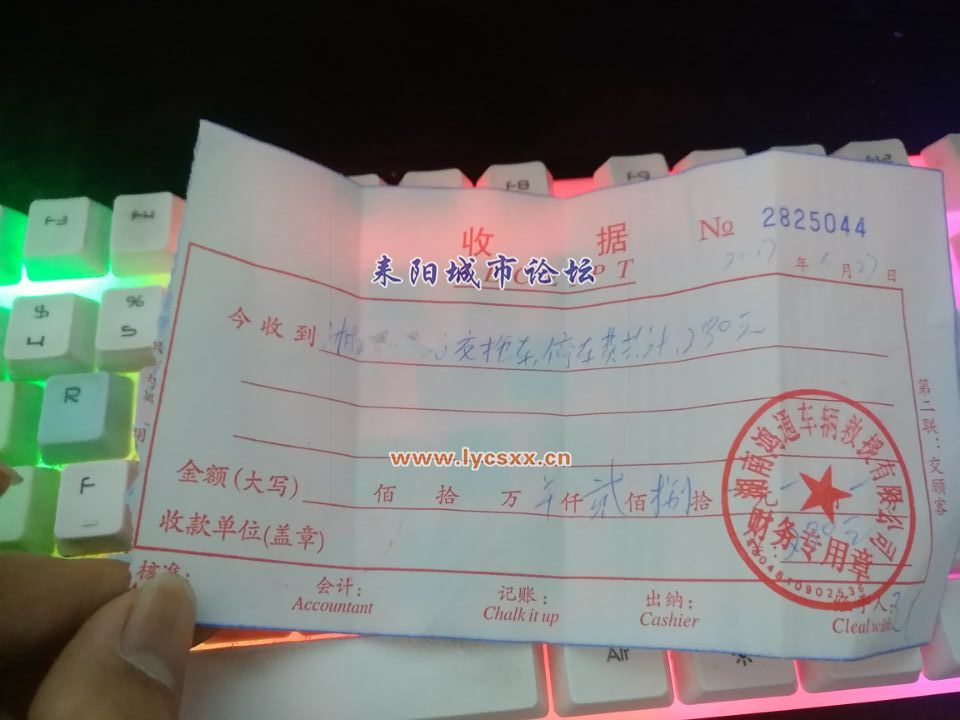 F3
F4
F8
F9
F12
$
4
%
5
R
F
收 据
№ 2825044
耒阳城市论坛
年 月 27 日
今收到 交拖车,停车费共计280元
www.lycsxx.cn
金额(大写) 佰 拾 万 仟 贰 佰 捌 拾 元
收款单位(盖章)
第二联:交顾客
湖南鸿通车辆救援有限公司
财务专用章
核准:
会计:
Accountant
记账:
Chalk it up
出纳:
Cashier
人:
Cleal with
Alt